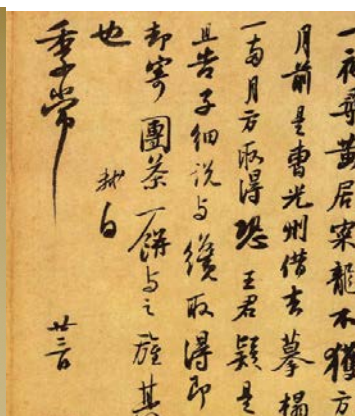 一夜尋黄居寀龍不獲方
月前是曹光州借去摹榻
一兩月方取得恐王君疑是
且告子細説与纔取得即
却寄團茶一餅与之旌其
也
軾白
季常
廿三日